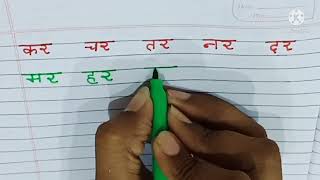 कर चर तर नर दर
मर हर